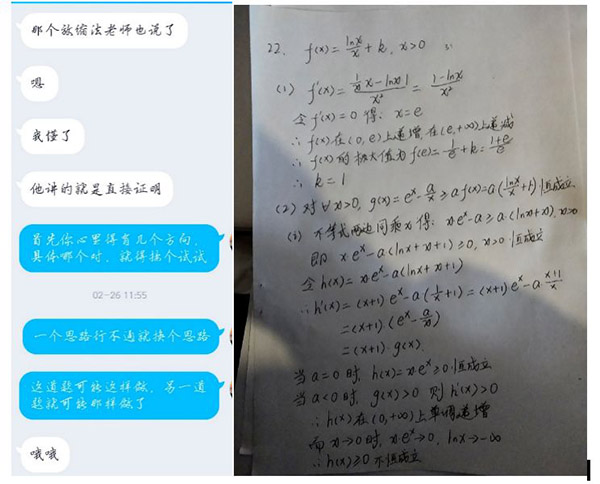 那个放缩法老师也说了
嗯
我懂了
他讲的就是直接证明
首先你心里得有几个方向,
具体哪个对,就得挨个试试
02-26 11:55
一个思路行不通就换个思路
这道题可能这样做,另一道
题就可能那样做了
哦哦
22. f(x)=lnx/x+k, x>0
(1) f'(x)=(1/x·x-lnx·1)/x²=(1-lnx)/x²
令f'(x)=0得: x=e
∴f(x)在(0,e)上递增,在(e,+∞)上递减
∴f(x)的极大值为f(e)=1/e+k=(1+e)/e
∴k=1
(2) 对∀x>0, g(x)=e^x-a/x≥af(x)=a(lnx/x+1)恒成立
不等式两边同乘x得: xe^x-a≥a(lnx+x), x>0
即 x·e^x-a(lnx+x+1)≥0, x>0恒成立
令h(x)=x·e^x-a(lnx+x+1)
∴h'(x)=(x+1)e^x-a(1/x+1)=(x+1)e^x-a·(x+1)/x
=(x+1)·(e^x-a/x)
=(x+1)·g(x)
当a=0时, h(x)=x·e^x≥0恒成立
当a<0时, g(x)>0 则h'(x)>0
∴h(x)在(0,+∞)上单调递增
而x→0时, x·e^x→0, lnx→-∞
∴h(x)≥0不恒成立